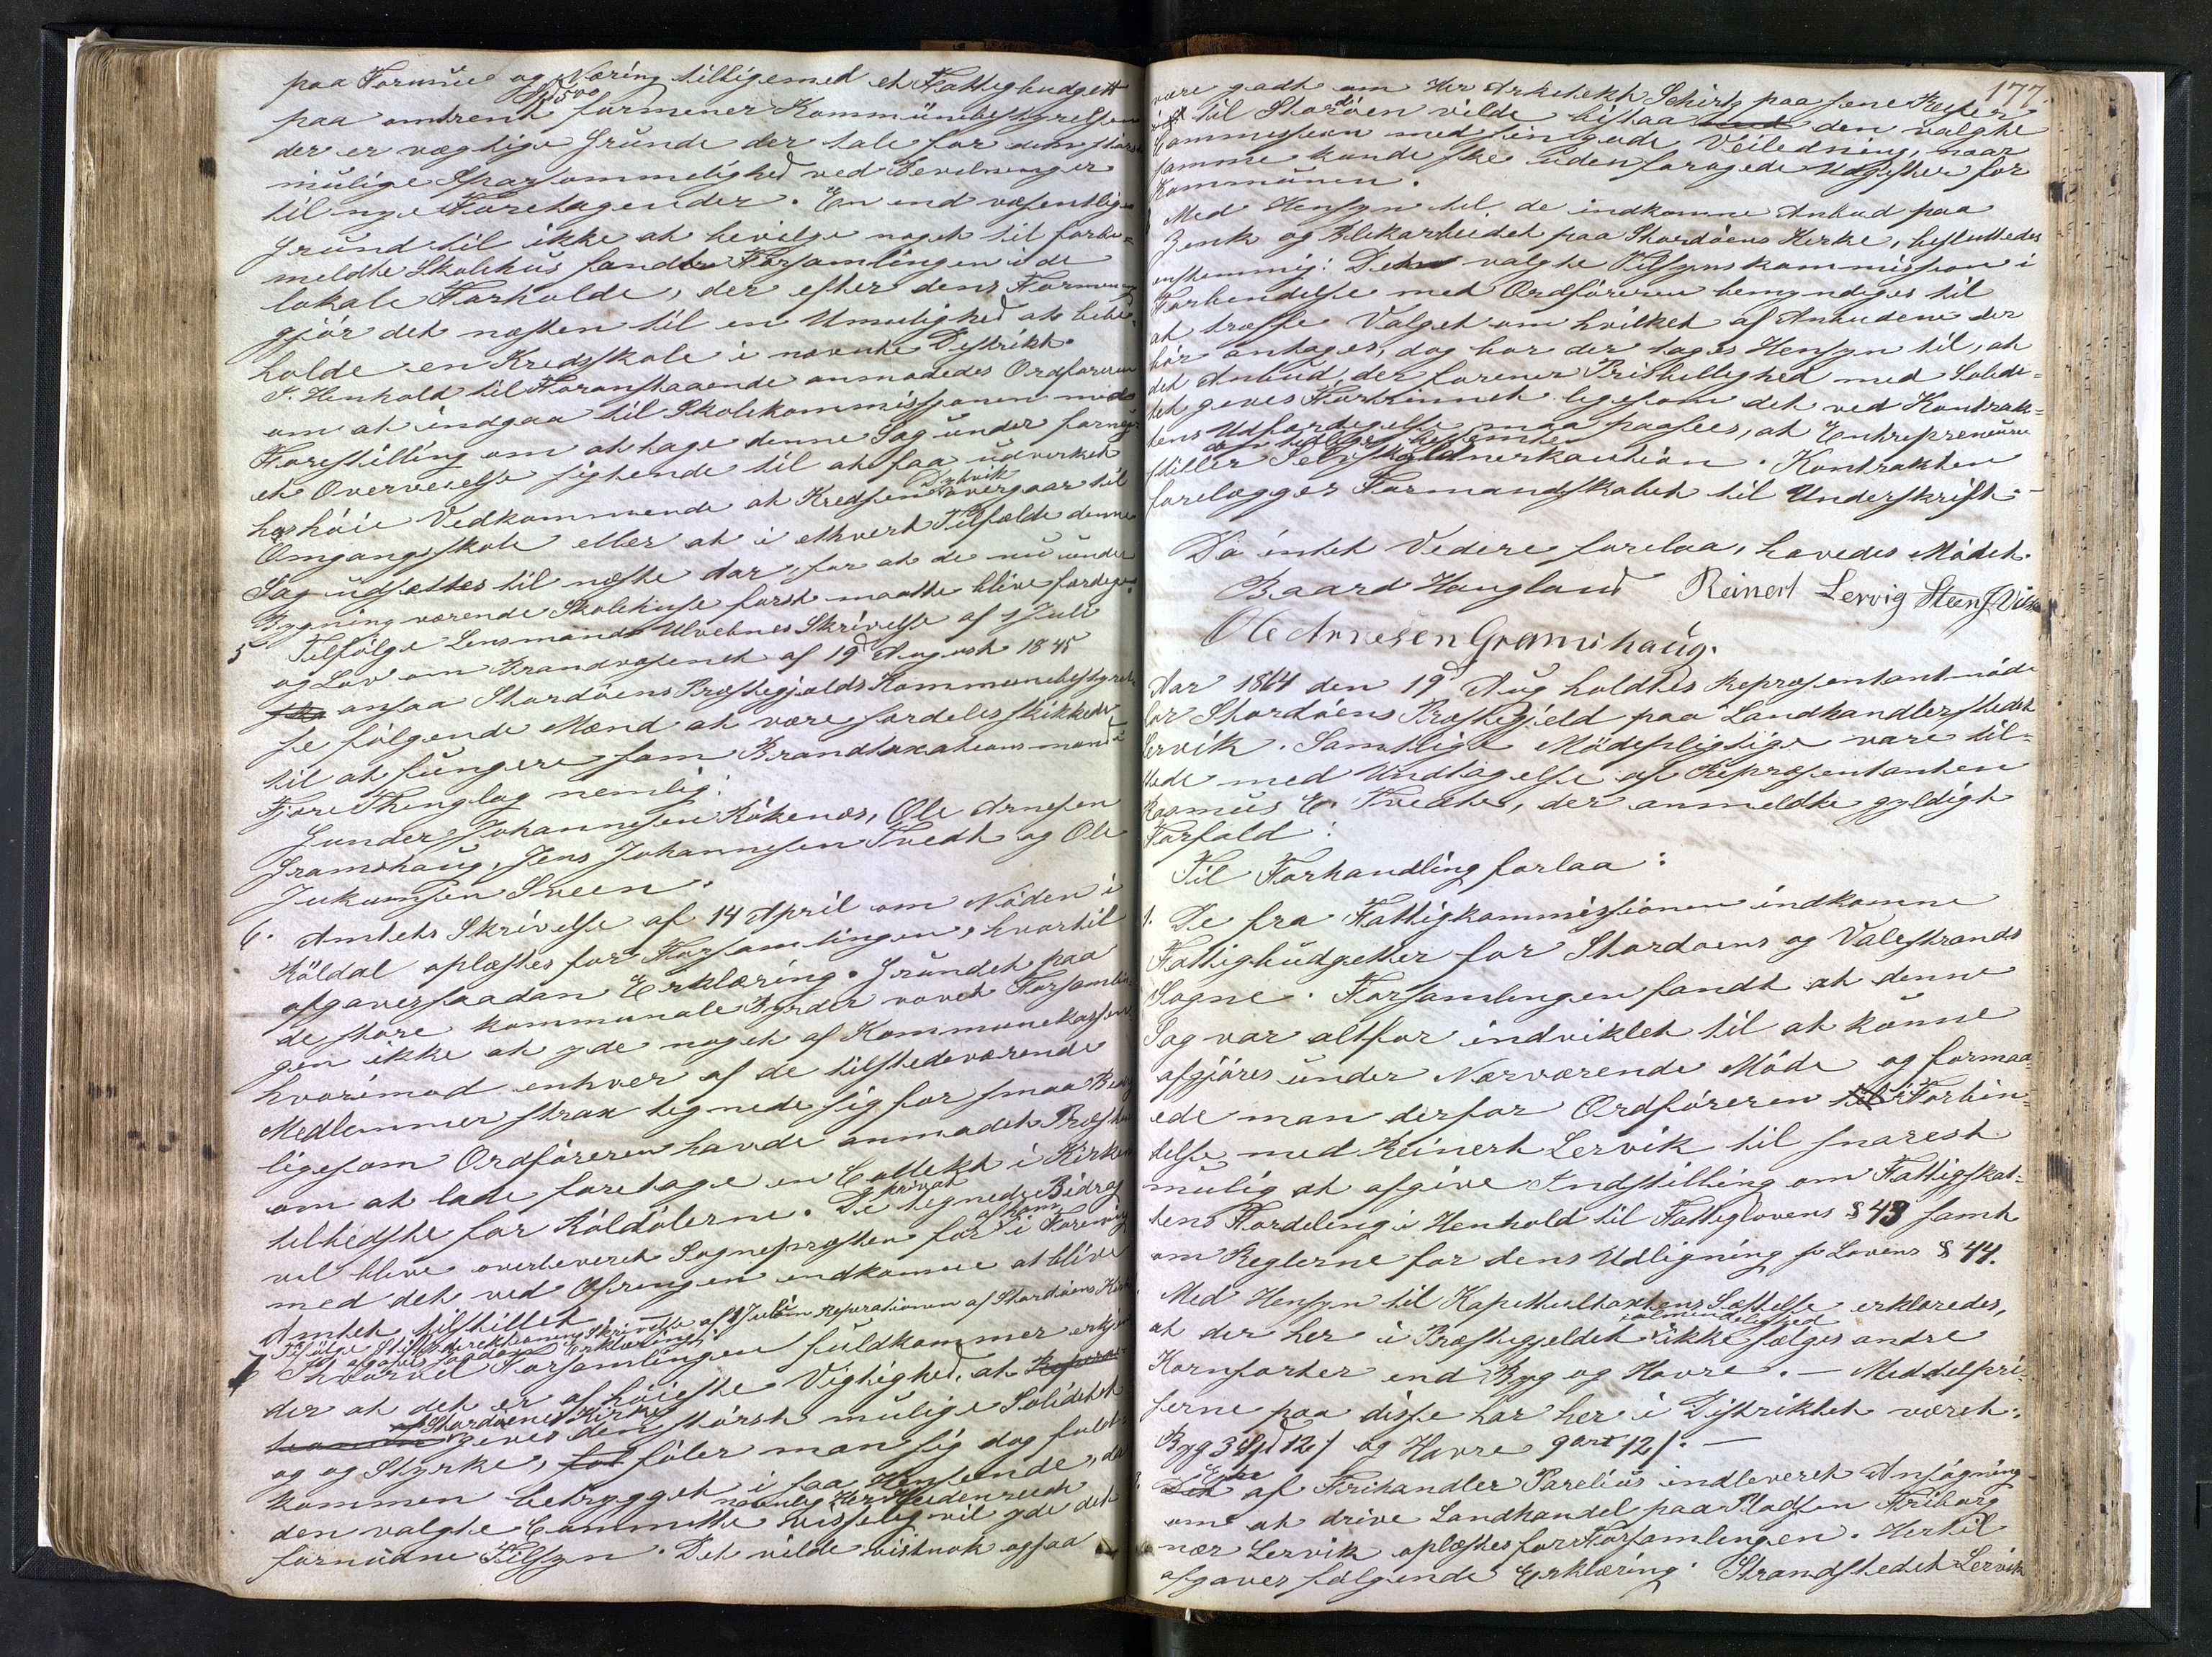 paa Formue og Næring tilligemed et Fattigbudgett
paa omtrent 500 formener Kommunebestyrelsen
der er vægtige Grunde der tale for den størst
mulige Sparsommelighed ved Bevilninger
til nye Foretagender. En end væsentlig
Grund til ikke at bevilge noget til forbe-
meldte Skolehus fandt Forsamlingen i de
lokale Forholde, der efter dens Formening
gjør det næsten til en Umulighed at bibe-
holde en Kredsskole i nævnte Distrikt.
I Henhold til Foranstaaende anmodedes Ordføreren
om at indgaa til Skolekommissionen med
Forestilling om at tage denne Sag under forny-
et Overveielse sigtende til at faa udvirket
hos høie Vedkommende at Kredsen overgaar til
Omgangsskole eller at i ethvert Tilfælde denne
Sag udsættes til næste Aar, for at de nu under
Bygning værende Skolehuse først maatte blive færdige.
5 Tilfølge Lensmand Ulvebnes Skrivelse af 1 Juli
og Lov om Brandvæsenet af 19d August 1845
ansaa Stordøens Præstegjelds Kommunebestyrel-
se følgende Mænd at være fordeles skikkede
til at fungere som Brandtaxationsmænd i
Fjære Thinglag nemlig:
Gunder Johannesen Kökenæs, Ole Arnesen
Gramshaug, Jens Johannesen Tvedt og Ole
Jokumsen Sveen.
6. Amtets Skrivelse af 14 April om Nöden i
Röldal oplæstes for Forsamlingen, hvortil
afgaves saadan Erklæring. Grundet paa
de store kommunale Byrder vovet Forsamlin-
gen ikke at yde noget af Kommunekassen
hvorimod enhver af de tilstedeværende
Medlemmer strax tegnede sig for smaa Bidrag
ligesom Ordføreren havde anmodet Præsten
om at lade foretage en Collekt i Kirken
tilbedste for Röldölerne. De privat tegnede Bidrag
vil blive overleveret Sognepræsten for af ham i Forening
med det ved Ofringen indkomne at blive
Amtet tilstillet.
7 Tilfølge Stiftsdirektionens Skrivelse af 1 Juli om Reparationen af Stordøens Kirke
afgaves saadan Erklæring:
Forsamlingen fuldkommen erkjen-
der at det er af høieste Vigtighed, at
Stordøens Kirke gives den størst mulige Soliditet
og Styrke, föler man sig dog fuld-
kommen betrygget i saa Henseende, da
den valgte Committe navnlig Her Heidenreich visselig vil yde det
fornödne Tilsyn. Det vilde vistnok ogsaa
177.
være godt om Her Arkitekt Schirtz paa sine Reiser
til Stordöen vilde bistaa den valgte
Commission med sin gode Veiledning, naar
samme kunde ske uden forøgede Udgifter for
Kommunen.
Med Hensyn til de indkomne Anbud paa
Zenk og Blekarbeidet paa Stordöens Kirke, besluttedes
enstemmig: Den valgte Tilsynskommission i
Forbindelse med Ordføreren bemyndiges til
at træffe Valget om hvilket af Anbudene der
bör antages, dog bör der tages Hensyn til, at
det Anbud, der forener Prisbillighed med Solidi-
tet gives Fortrinnet ligesom det ved Kontrak-
tens Udfærdigelse maa paasees, at Entrepreneuren
stiller den tidligere bestemte Selvskyldnerkaution. Kontrakten
forelægges Formandskabet til Underskrift.
Da intet Videre forelaa, hævedes Mödet.
Baard Haugland Reinert Lervig Steen J Vik
Ole Arnesen Gramshaug.
Aar 1864 den 19d Aug holdtes Repræsentantmöde
for Stordöens Præstegjeld paa Landhandlerstedet
Lervik. Samtlige Mödepligtige vare til-
stede med Undtagelse af Repræsentanten
Rasmus E. Tvedte, der anmeldte gyldigt
Forfald.
Til Forhandling forlaa:
1. De fra Fattigkommissionen indkomne
Fattigbudgetter for Stordöens og Valestrands
Sogne. Forsamlingen fandt at denne
Sag var altfor indviklet til at kunne
afgjöres under Nærværende Möde og formaa-
ede man derfor Ordföreren i Forbin-
delse med Reinert Lervik til snarest
mulig at afgive Indstilling om Fattigskat-
tens Fordeling i Henhold til Fattiglovens § 43 samt
om Reglerne for dens Udligning se Lovens § 44.
Med Hensyn til Kapitelstaxtens Sættelse erklæredes,
at der her i Præstegjeldet i almindelighed ikke sælges andre
Kornsorter end Byg og Havre. — Middelpri-
serne paa disse har her i Distriktet været:
Byg 3 Spd 12 s og Havre 9 ort 12 s. —
En af Frihandler Parelius indleveret Ansögning
om at drive Landhandel paa Pladsen Friborg
nær Lervik oplæstes for Forsamlingen. Hertil
afgaves følgende Erklæring: Strandstedet Lervik